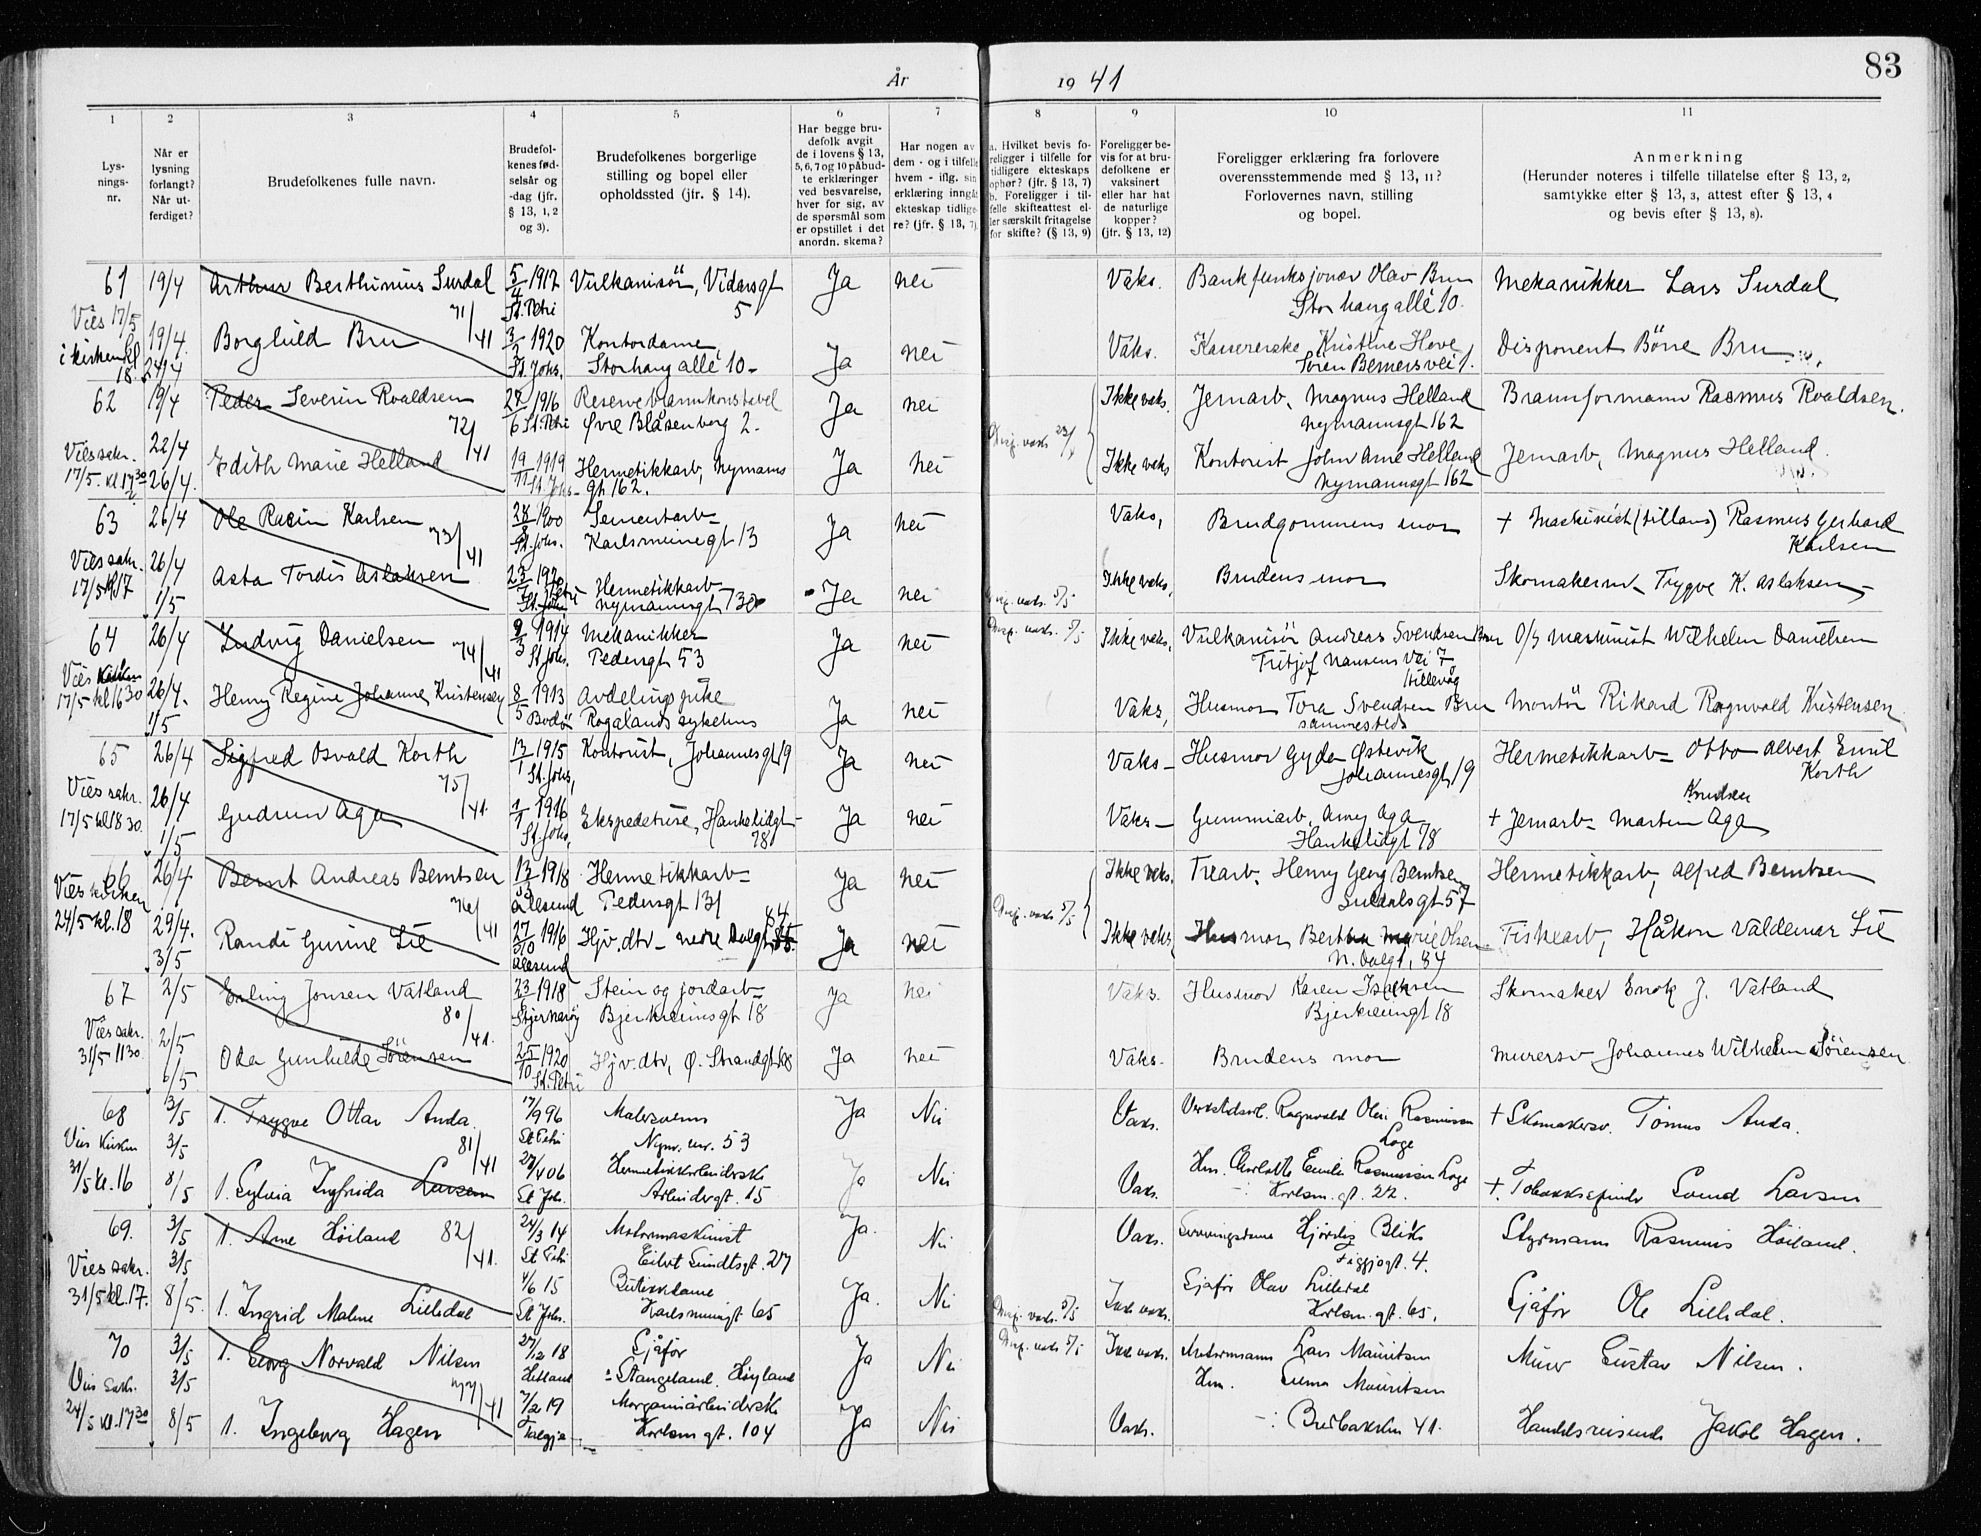 År 1941
83
1
2
3
4
5
6
7
8
9
10
11
Lys-
nings-
nr.
Når er
lysning
forlangt?
Når ut-
ferdiget?
Brudefolkenes fulle navn.
Brudefol-
kenes fød-
selsår og
-dag (jfr.
§ 13, 1, 2
og 3).
Brudefolkenes borgerlige
stilling og bopel eller
opholdssted (jfr. § 14).
Har begge bru-
defolk avgit
de i lovens § 13,
5, 6, 7 og 10 påbud-
te erklæringer
ved besvarelse,
hver for sig, av
de spørsmål som
er opstillet i det
anordn. skema?
Har nogen av
dem - og i tilfelle
hvem - iflg. sin
erklæring inngåt
ekteskap tidlige-
re? (jfr. § 13, 7).
a. Hvilket bevis fo-
religger i tilfelle for
tidligere ekteskaps
ophør? (jfr. § 13, 7)
b. Foreligger i til-
felle skifteattest el-
ler særskilt fritagelse
for skifte? (§ 13, 9)
Foreligger be-
vis for at bru-
defolkene er
vaksinert
eller har hat
de naturlige
kopper?
(jfr. § 13, 12)
Foreligger erklæring fra forlovere
overensstemmende med § 13, 11?
Forlovernes navn, stilling
og bopel.
Anmerkning
(Herunder noteres i tilfelle tillatelse efter § 13, 2,
samtykke efter § 13, 3, attest efter § 13, 4
og bevis efter § 13, 8).
61 19/4 Arthur Berthinius Surdal 5/4 1917 St. Petri Vulkanisør, Vidarsgt 5 Ja nei Vaks. Bankfunksjonær Olav Bru Storhaug allé 10. Mekanikker Lars Surdal
Vies 17/5 i kirken kl 18. 19/4 24/4 Borghild Bru 71/41 1920 St. Johs. Kontordame, Storhaug allé 10 - Ja nei Vaks. Kassererske Kristine Hove Disponent Börre Bru
62 19/4 Peder Severin Roaldsen 27/6 1916 St. Petri Reserve brannkonstabel Øvre Blåsenborg 2. Ja nei Ikke vaks. Jernarb. Magnus Helland Nymannsgt 162 Brannformann Rasmus Roaldsen.
Vies sakr. 17/5. kl 17 30 22/4 26/4. Edith Marie Helland 72/41 19/11 1919 St. Johs. Hermetikkarb, Nymansgt 162. Ja nei Ikke vaks Kontorist John Arne Helland Nymannsgt 162 Jernarb, Magnus Helland.
63 26/4 Ole Racin Karlsen 28/8 1900 St. Johs. Sementarb - Karlsmeinegt 13 Ja nei Vaks, Brudgommens mor + Maskinist (tillands) Rasmus Gerhard Karlsen
Vies sakr. 17/5 kl 17 26/4 1/5 Asta Tordis Aslaksen 73/41 1920 St. Petri Hermetikkarb Nymannsgt 73 Ja nei Ikke vaks, Brudens mor Skomakerm - Trygve K. Aslaksen
64 26/4 Ludvig Danielsen 9/3 1914 St. Johs. Mekanikker Pedersgt 53 Ja nei Ikke vaks, Vulkanisør Andreas Svendsen Bru Fritjof Nansens vei 7 Hillevåg Maskinist Wilhelm Danielsen
Vies Kirken 17/5 kl 16 30 26/4. 1/5 Henny Regine Johanne Kristensen 74/41 8/5 1913 Bodø Avdelingspike Rogalands sykehus Ja nei Vaks, Husmor Tora Svendsen Bru sammesteds Montör Rikard Ragnvald Kristensen
65 26/4 Sigfred Osvald Korth 13/1 1915 St. Johs, Kontorist, Johannesgt 19 Ja nei Vaks - Husmor Gyda Østevik Johannesgt 19 Hermetikkarb - Otto Albert Emil Korth
Vies sakr. 17/5 kl 18 30. 26/4 1/5 Gudrun Aga 75/41. 1/1 1916 St. Johs, Ekspeditrise, Haukelidgt 78 Ja nei Vaks - Gummiarb, Amy Aga Haukelidgt 78 + Jernarb - Martin Knudsen Aga
66 26/4 Bernt Andreas Berntsen 13/3 1918 Ålesund Hermetikkarb - Pedersgt 131 Ja nei Ikke vaks. Trearb. Henry Georg Berntsen Suldalsgt 57 Hermetikkarb, Alfred Berntsen
Vies kirken 24/5 kl. 18 29/4. 3/5 Randi Gurine Lie 76/41 27/10 1916 Ålesund Hjv. dtr - nedre Dalgt 84 Ja nei Ikke vaks Husmor Olsen N. Dalgt, 84 Fiskearb, Håkon Valdemar Lie
67 2/5 Erling Jonsen Vatland 23 1918 Sjernarøy Stein og jordarb - Bjerkreimsgt 18 Ja nei Vaks. Husmor Karen Isaksen Bjerkreimgt 18 Skomaker Enok J. Vatland
Vies sakr. 31/5 1130 2/5 6/5 Oda Gunhilde Sörensen 80/41. 25/10 1920 St. Petri Hjv. dtr, Ø. Strandgt Ja nei Vaks. Brudens mor Murersv Johannes Wilhelm Sörensen
68 3/5 1. Trygve Ottar Anda. 17/9 96 St Petri Malersvenn Nym. nr. 53 Ja Nei Vaks. Verkstedarb. Ragnvald Olai Rasmussen Loge + Skomakersv. Tönnes Anda.
Vies Kirken 31/5 kl. 16 3/5 8/5 1. Sylvia Ingfrida Larsen 81/41 27/4 06 St Johs. Hermetikkarbeiderske Arbeidergt. 15 Ja Nei Vaks. Hm. Charlotte Emilie Rasmussen Loge Karlsm. gt. 22. + Tobakksspinder Svend Larsen
69. 3/5 1. Arne Höiland 82/41. 24/3 14 St Petri Motormaskinist Eilert Sundtsgt. 27 Ja. Nei Vaks. Serveringsdame Hjørdis Figgjogt. 4. Styrmann Rasmus Höiland.
Vies sakr. 31/5 kl. 17. 3/5 8/5. 1. Ingrid Malene Lilledal 4/6 15 St Johs. Butikkdame Karlsmineigt 65 Ja. Nei Ikke vaks. Sjåfør Olav Lilledal Karlsm. gt. 65. Sjåfør Ole Lilledal.
70 3/5 1. Georg Norvald Nilsen 27/12 18 Hetland Sjåfør Stangeland. Høyland Ja Nei Ikke vaks. Lars Mauritsen Murer Gustav Nilsen.
Vies Sakr. 24/5 kl. 17 30 3/5 8/5 1. Ingeborg Hagen 77/41 7/2 19 Talgje Margarinarbeiderske Karlsm gt. 104 Ja Nei Vaks. Hm. Selma Mauritsen 41. Handelsreisende Jakob Hagen.